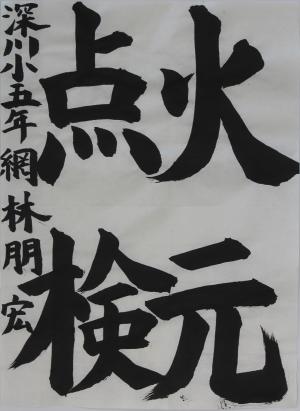 火元
点検
深川小五年網林朋宏